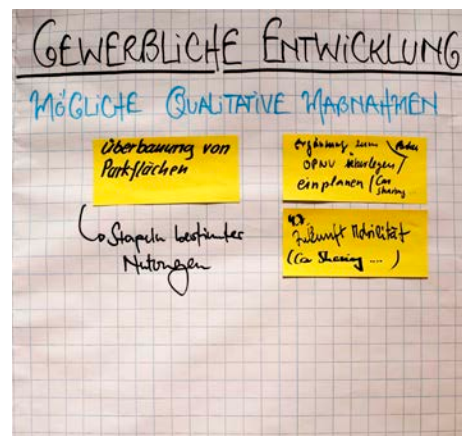 GEWERBLICHE ENTWICKLUNG
MÖGLICHE QUALITATIVE MAßNAHMEN
Überbauung von
Parkflächen
Stapeln bestimmter
Nutzungen
Ergänzung zum
ÖPNV überlegen/
einplanen (Car
sharing...
Zukunft Mobilität
(Car Sharing .... )